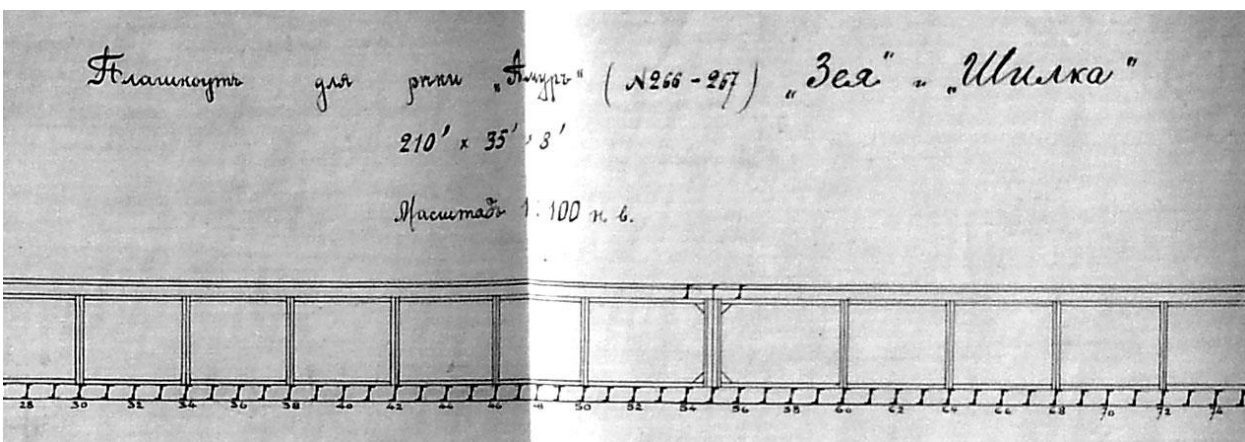 Плашкоутъ для рѣки „Амуръ" (N266-267) „Зея" и „Шилка"
210' x 35' x 8'
Масштабъ 1:100 н. в.
28 30 32 34 36 38 40 42 44 46 48 50 52 54 56 58 60 62 64 66 68 70 72 74